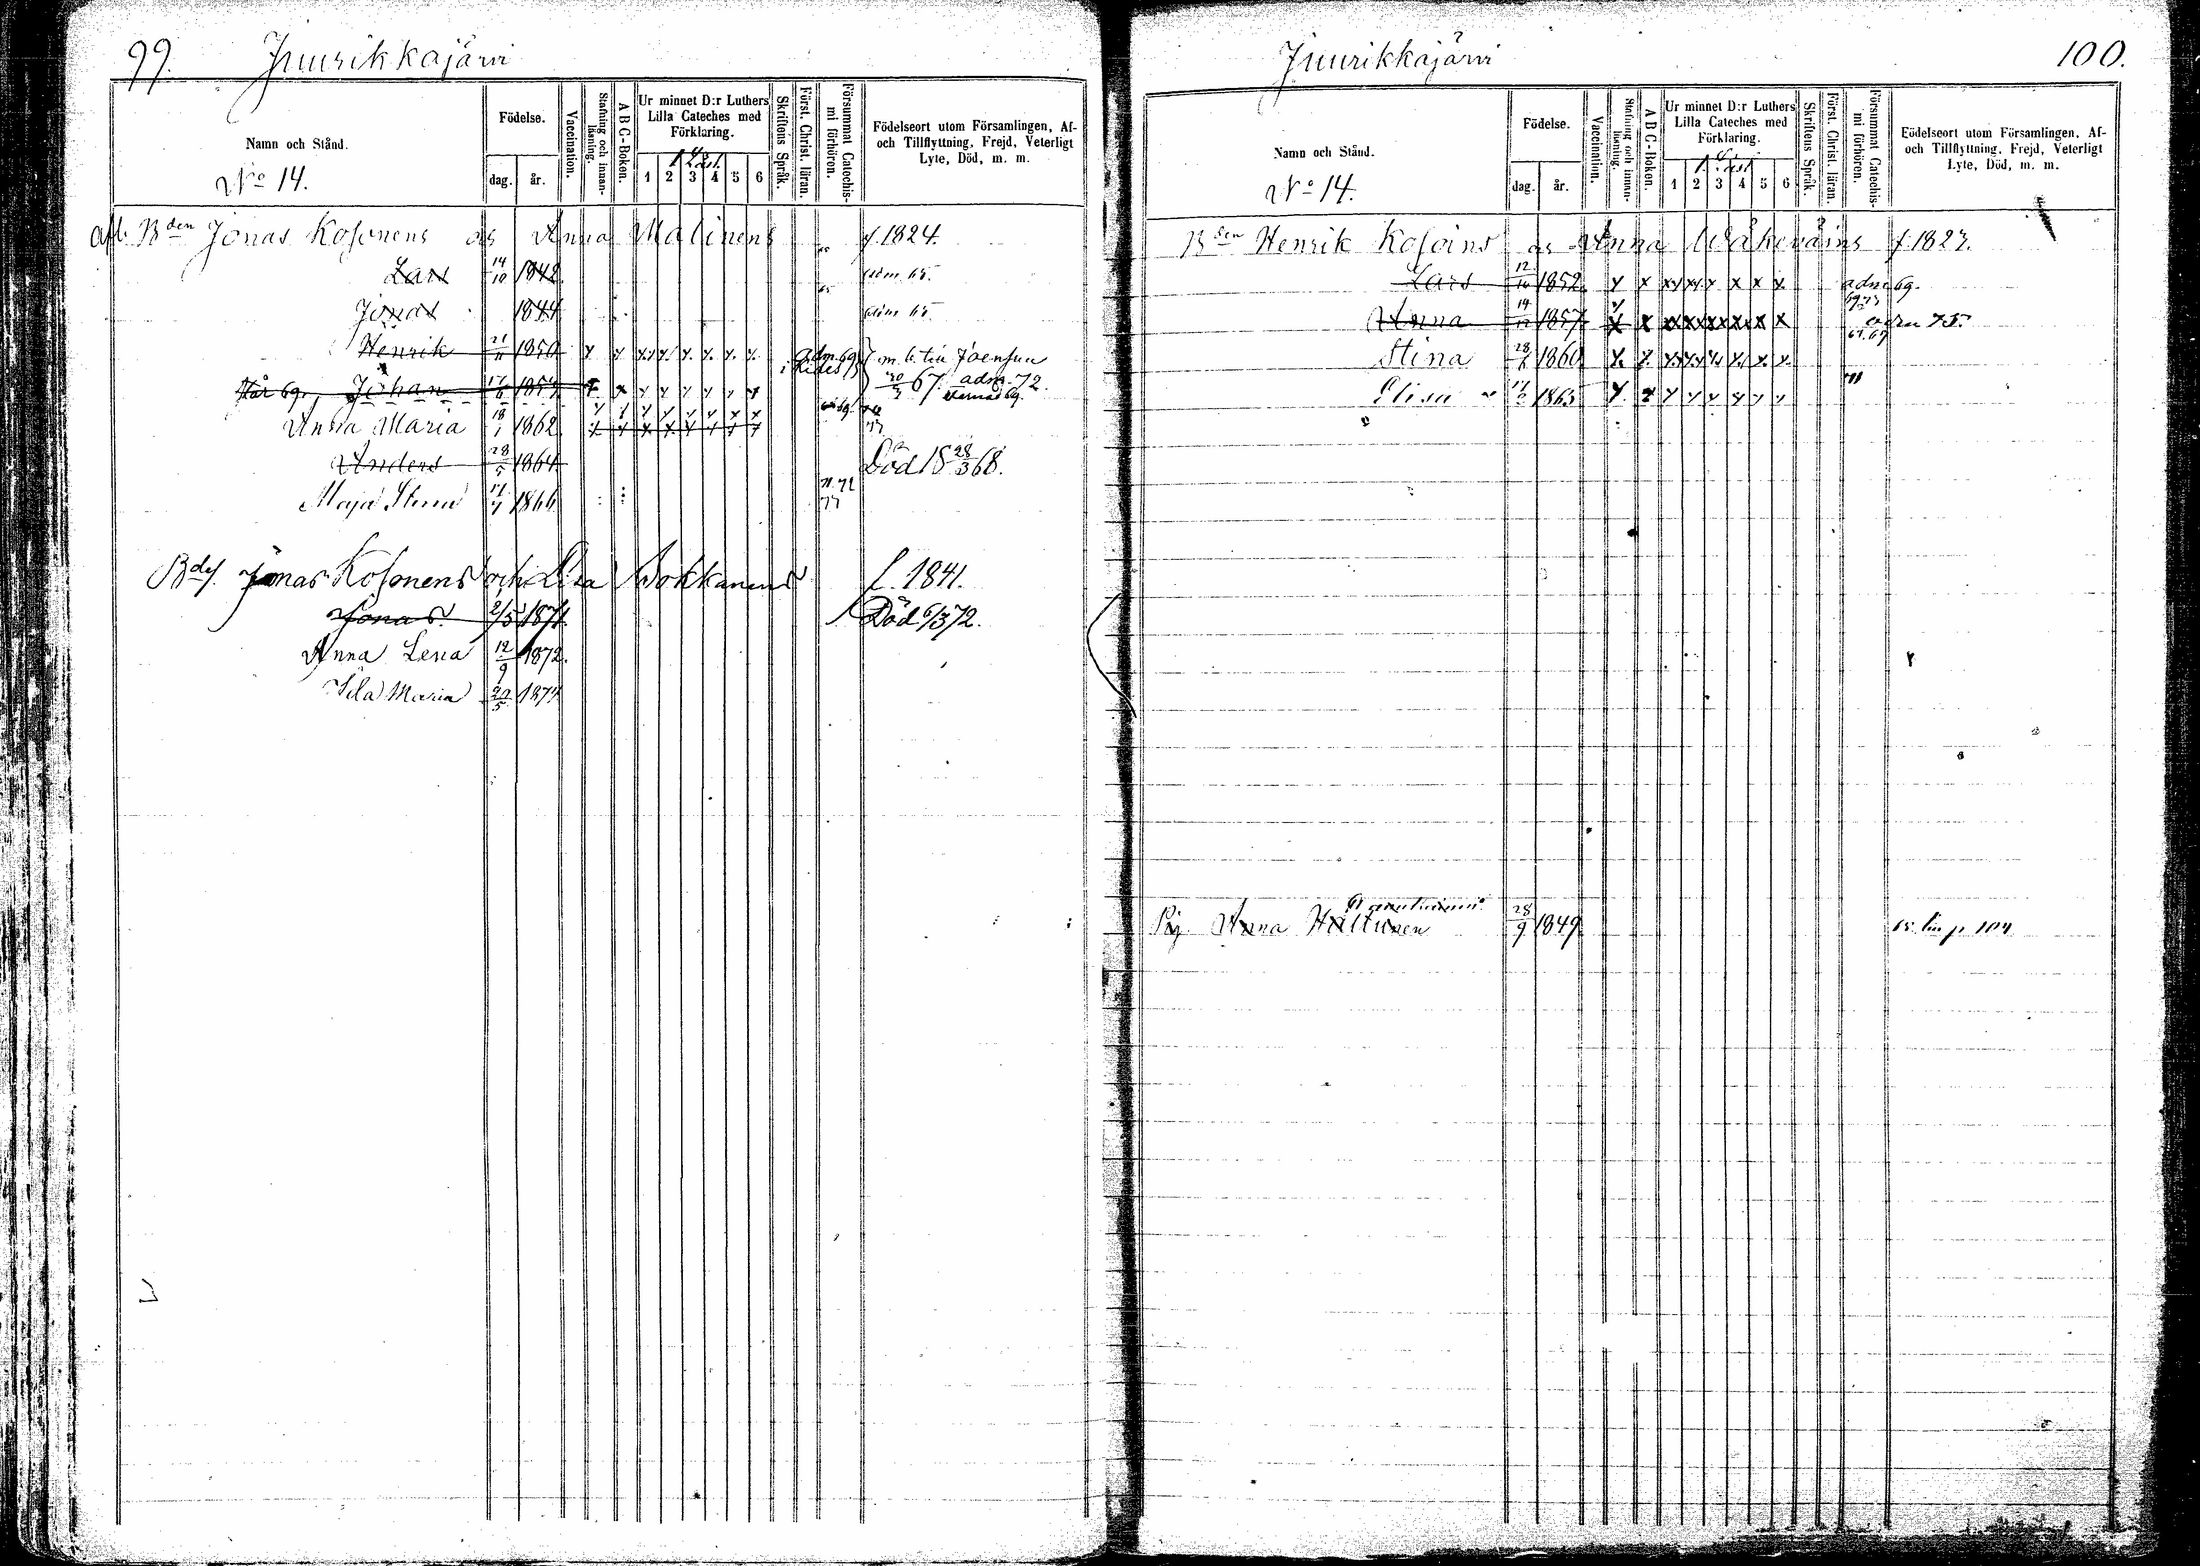 99. Juurikkajärvi
Namn och Stånd.
No 14.
Födelse.
dag. år.
Vaccination.
Stafning och innan-läsning.
A B C-Boken.
Ur minnet D:r Luthers Lilla Cateches med Förklaring.
1 2 3 4 5 6
Skriftens Språk.
Först. Christ. läran.
Försummat Catechis-mi förhören.
Födelseort utom Församlingen, Af- och Tillflyttning, Frejd, Veterligt Lyte, Död, m. m.
afl. Bden Jonas Kosonens Anna Malinens f. 1824.
Lars 14/10 1842 adm. 65.
Jonas 1844 adm 65.
Henrik 21/11 1850 adm. 69 Joensuu
Johan 67. adm. 72.
Anna Maria 18/1 1862
Anders 28/5 1864 Död 18 28/3 68.
Maja Stina 1866
Bdf. Jonas Kosonens och Lisa Sokkanens f. 1841.
Jonas 2/5 1871 Död 6/3 72.
Anna Lena 12/9 1872.
Maria 20/5 1874
Juurikkajärvi 100.
Namn och Stånd.
No 14.
Födelse.
dag. år.
Vaccination.
Stafning och innan-läsning.
A B C-Boken.
Ur minnet D:r Luthers Lilla Cateches med Förklaring.
1 2 3 4 5 6
Skriftens Språk.
Först. Christ. läran.
Försummat Catechis-mi förhören.
Födelseort utom Församlingen, Af- och Tillflyttning, Frejd, Veterligt Lyte, Död, m. m.
Bden Henrik Kosoins Anna Wäkeväins f. 1827.
Lars 1852 adm 69.
Anna 1857 adm 75.
Stina 1860
Elisa 1863
Pig. Anna Hiltunen 28/9 1849 65 p. 104